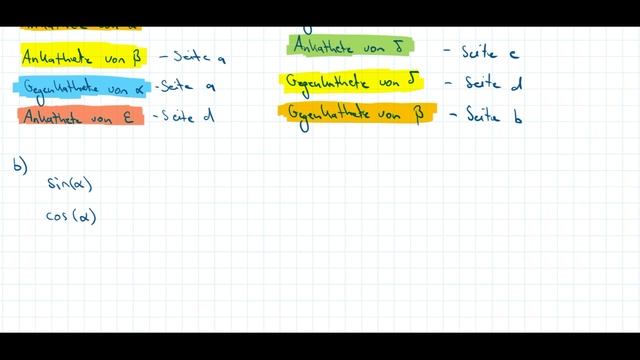 Ankathete von β – Seite a
Gegenkathete von α – Seite a
Ankathete von ε – Seite d
Ankathete von δ – Seite e
Gegenkathete von δ – Seite d
Gegenkathete von β – Seite b
b)
sin(α)
cos(α)